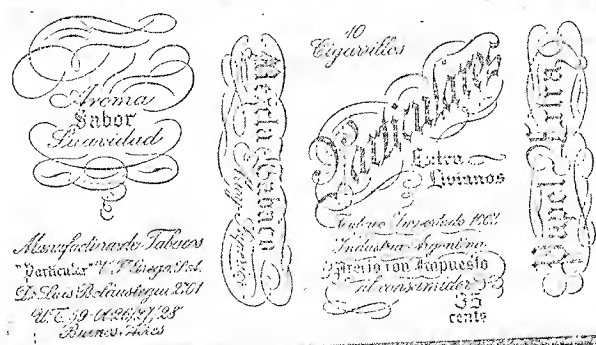 Aroma
Sabor
Suavidad
Manufactura de Tabacos
"Particular" V. F. Grego S.A.
Dr. Luis Beláustegui 2701
U.T. 59-0026/27/28
Buenos Aires
Mezcla Tabaco
10
Cigarrillos
Particulares
Extra
Livianos
Tabaco Importado
Industria Argentina
Precio con Impuesto
al consumidor
35
cents
Papel Extra